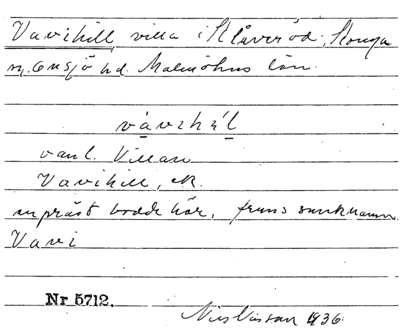 Vavihill, villa i Klåveröd, Stenga
sn, Onsjö hd. Malmöhus län.
vàvihìl
vanl. Villan
Vavihill, 
en präst bodde här, fruns smeknamn
Vavi
Nr 5712.
Nils Nilsson 1936